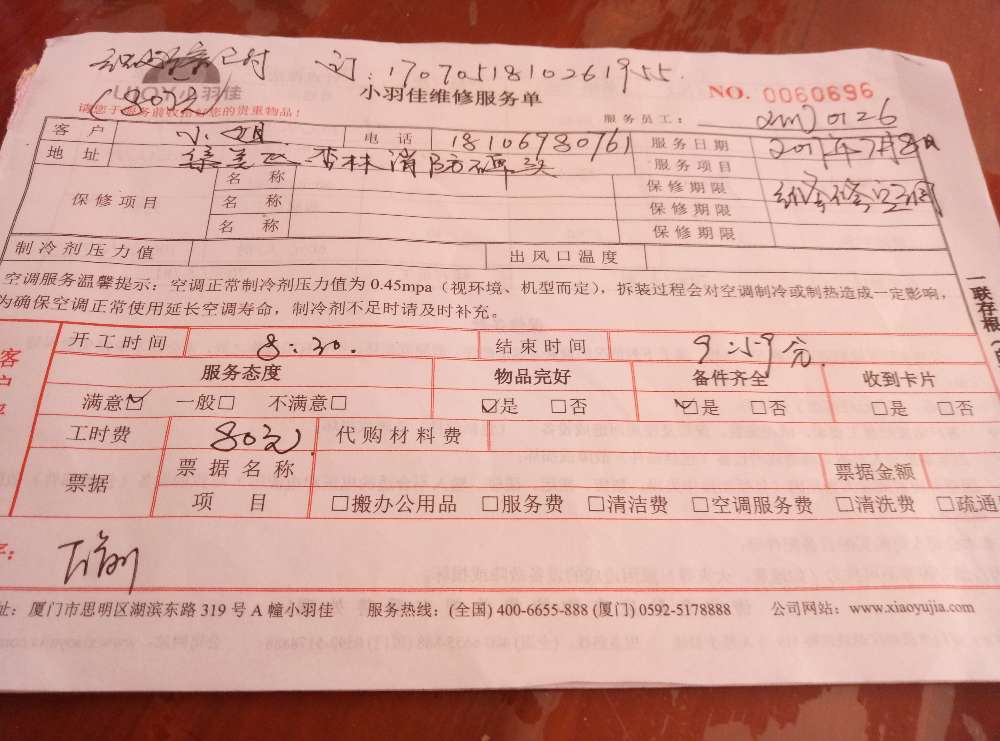 已付 订:1707051810261955.
(80元)
小羽佳
请您于服务前收拾好您的贵重物品!
小羽佳维修服务单
NO. 0060696
服务员工: xmj0126
客户 小姐 电话 18106980761 服务日期 2017年7月8日
地址 集美区杏林消防碑头 服务项目
保修项目 名称 保修期限 维修空调
名称 保修期限
名称 保修期限
制冷剂压力值 出风口温度
空调服务温馨提示:空调正常制冷剂压力值为 0.45mpa(视环境、机型而定),拆装过程会对空调制冷或制热造成一定影响,
为确保空调正常使用延长空调寿命,制冷剂不足时请及时补充。
一联存根
客户
开工时间 8:30. 结束时间 9小9分.
服务态度 物品完好 备件齐全 收到卡片
满意☑ 一般□ 不满意□ ☑是 □否 ☑是 □否 □是 □否
工时费 80元. 代购材料费
票据 票据名称 票据金额
项目 □搬办公用品 □服务费 □清洁费 □空调服务费 □清洗费 □疏通
字:
址:厦门市思明区湖滨东路 319 号 A 幢小羽佳 服务热线:(全国) 400-6655-888 (厦门) 0592-5178888 公司网站:www.xiaoyujia.com